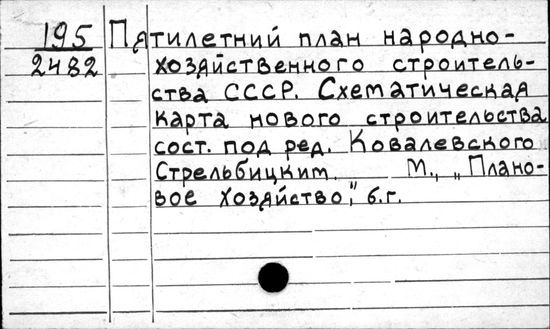 195 Пятилетний план народно-
2482 хозяйственного строитель-
ства СССР. Схематическая
карта нового строительства
сост. под ред. Ковалевского
Стрельбицким. М., „Плано-
вое хозяйство", б.г.